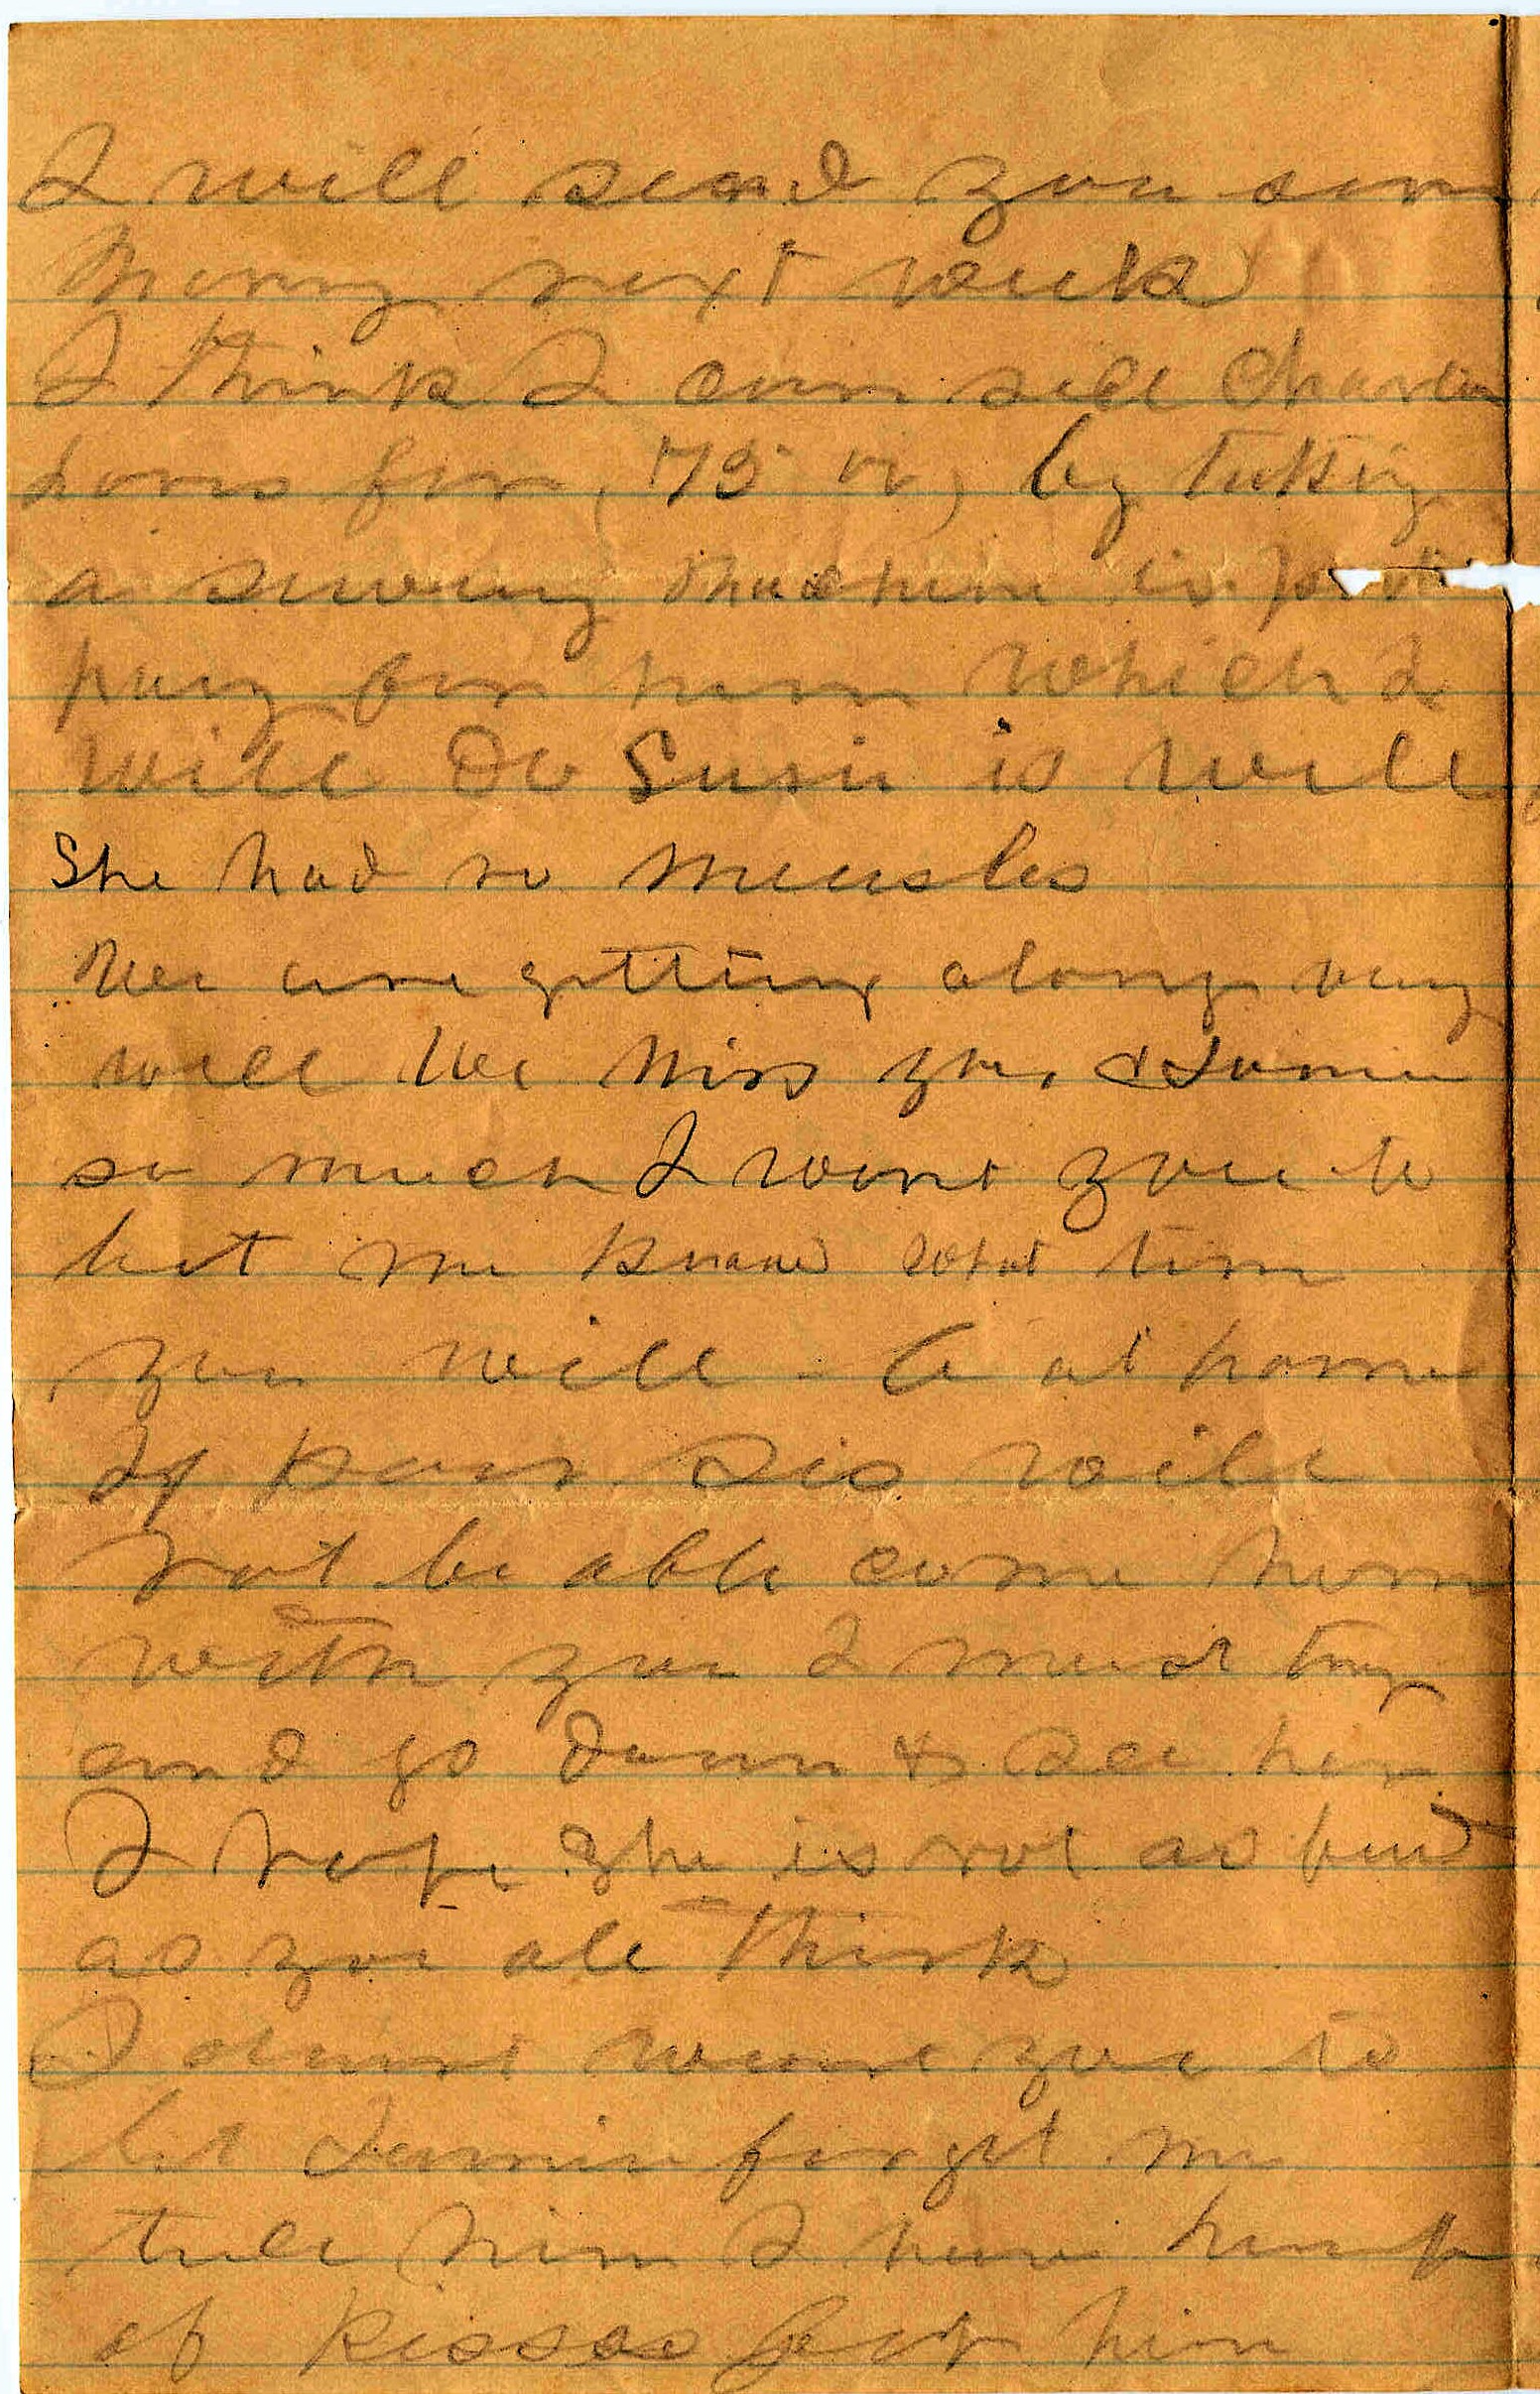 I will send you som
money next week
I think I can sell Charlie
hors for (75 00) by taking
a sewing machine in part
pay for him which I
will do Susie is well
She had no measles
We are getting along very
well We miss you &
so much I want you to
let me know what time
you will be at home
If poor Sis will
not be able come home
with you I must try
and go down & see her
I hope She is not as bad
as you all think
I want you to
let forget me
tell him I have
of kisses for him